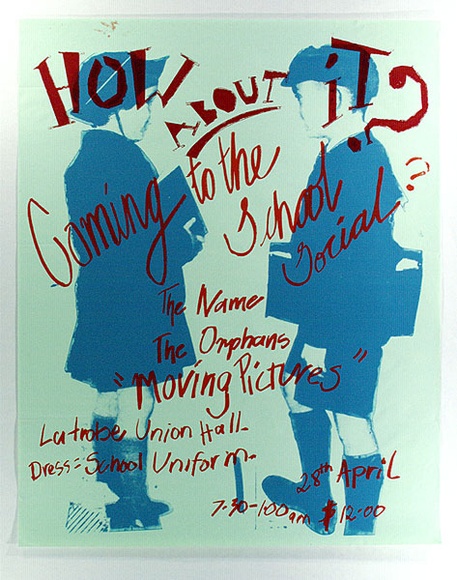 HOW ABOUT iT?
Coming to the School Social?
The Name
The Orphans
"Moving Pictures"
Latrobe Union Hall.
Dress: School Uniform.
28th April
7.30-1.00am $12.00